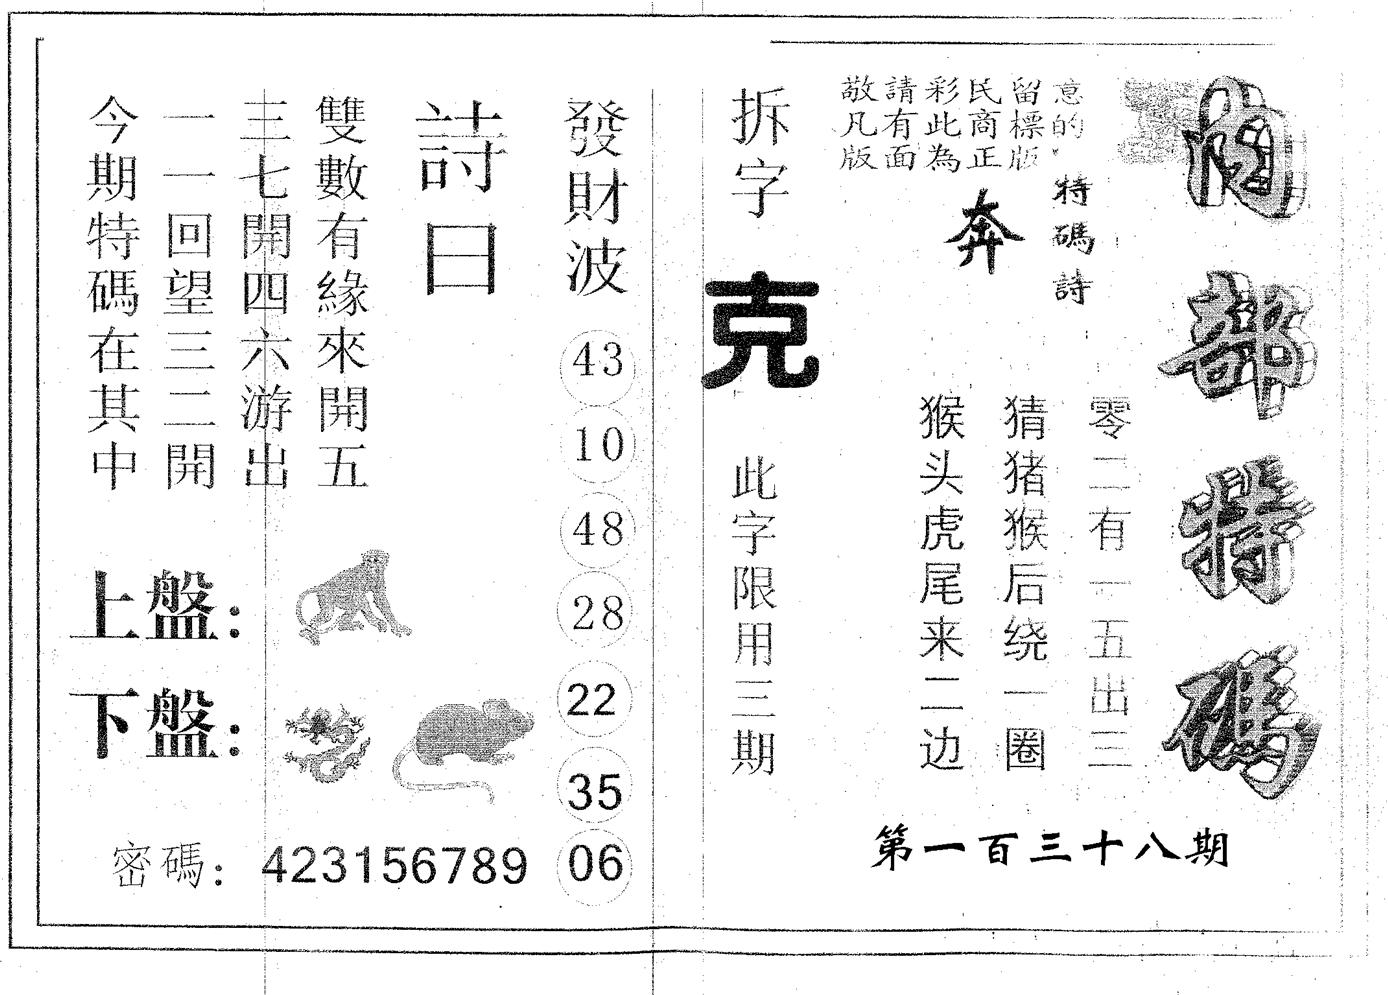 内部特碼
意的，
留標版
民商正
彩此為
請有面
敬凡版
特碼詩
奔
零二有一五出三
猜猪猴后绕一圈
猴头虎尾来二边
第一百三十八期
拆字
克
此字限用三期
發財波
43
10
48
28
22
35
06
詩曰
雙數有緣來開五
三七開四六游出
一一回望三二開
今期特碼在其中
上盤：
下盤：
密碼：423156789